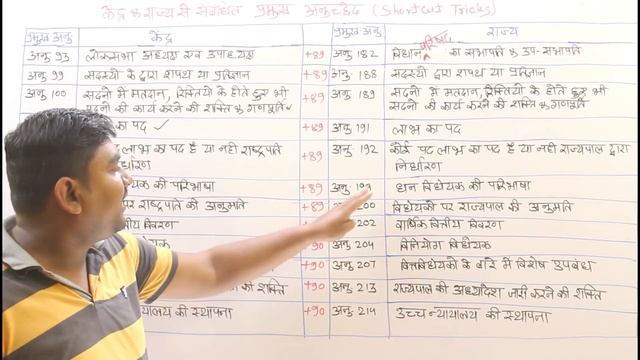 केंद्र & राज्य से संबंधित प्रमुख अनुच्छेद (Shortcut Tricks)
प्रमुख अनु॰ केंद्र प्रमुख अनु॰ राज्य
अनु 93 लोकसभा अध्यक्ष एवं उपाध्यक्ष +89 अनु॰ 182 विधान परिषद का सभापति & उप-सभापति
अनु 99 सदस्यों के द्वारा शपथ या प्रतिज्ञान +89 अनु॰ 188 सदस्यों द्वारा शपथ या प्रतिज्ञान
अनु॰ 100 सदनों में मतदान, रिक्तियों के होते हुए भी +89 अनु॰ 189 सदनों में मतदान, रिक्तियों के होते हुए भी
सदनों की कार्य करने की शक्ति & गणपूर्ति सदनों की कार्य करने की शक्ति & गणपूर्ति
का पद +89 अनु॰ 191 लाभ का पद
लाभ का पद है या नहीं राष्ट्रपति +89 अनु॰ 192 कोई पद लाभ का पद है या नहीं राज्यपाल द्वारा
निर्धारण
की परिभाषा +89 अनु॰ धन विधेयक की परिभाषा
पर राष्ट्रपति की अनुमति +89 200 विधेयकों पर राज्यपाल की अनुमति
वित्तीय विवरण 202 वार्षिक वित्तीय विवरण
+90 अनु॰ 204 विनियोग विधेयक
+90 अनु॰ 207 वित्त विधेयकों के बारे में विशेष उपबंध
की शक्ति +90 अनु॰ 213 राज्यपाल की अध्यादेश जारी करने की शक्ति
की स्थापना +90 अनु॰ 214 उच्च न्यायालय की स्थापना